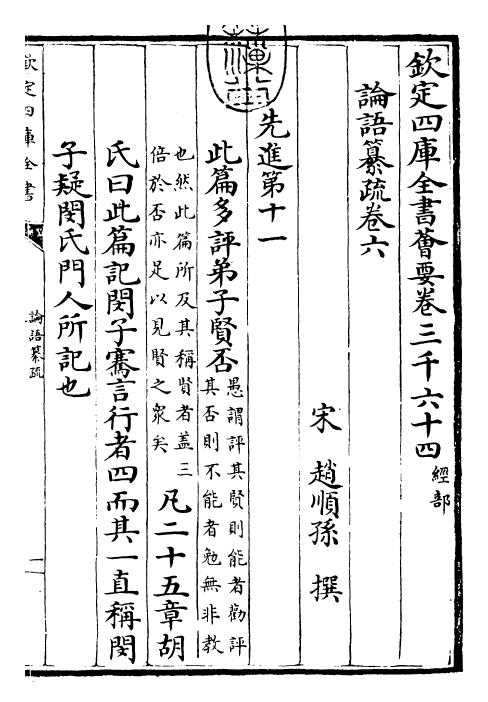 欽定四庫全書薈要卷三千六十四 經部
論語纂疏卷六
宋 趙順孫 撰
先進第十一
此篇多評弟子賢否 愚謂評其賢則能者勸評
其否則不能者勉無非教
也然此篇所及其稱賢者蓋三
倍於否亦足以見賢之衆矣 凡二十五章胡
氏曰此篇記閔子騫言行者四而其一直稱閔
子疑閔氏門人所記也
欽定四庫全書
論語纂疏
一